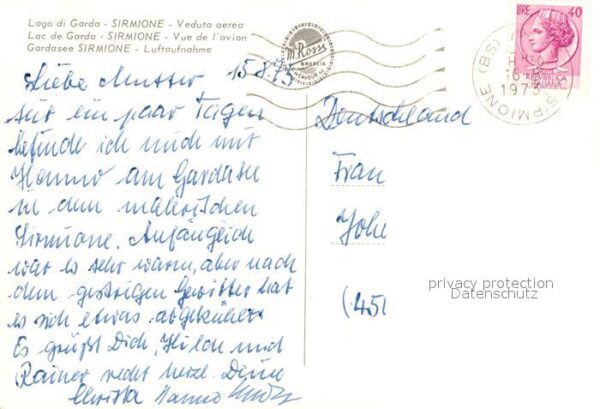 Lago di Garda - SIRMIONE - Veduta aerea
Lac de Garda - SIRMIONE - Vue de l'avion
Gardasee SIRMIONE - Luftaufnahme
M. Rossi
BRESCIA
LIRE 40
SIRMIONE (BS)
Liebe Mutter 15.8.73
seit ein paar Tagen
befinde ich mich mit
Hanno am Gardasee
in dem malerischen
Sirmione. Anfänglich
war es sehr warm, aber nach
dem gestrigen Gewitter hat
es sich etwas abgekühlt.
Es grüßt Dich, und
Rainer recht herzl. Deine
Christa Hanno
Deutschland
Frau
(451
privacy protection
Datenschutz